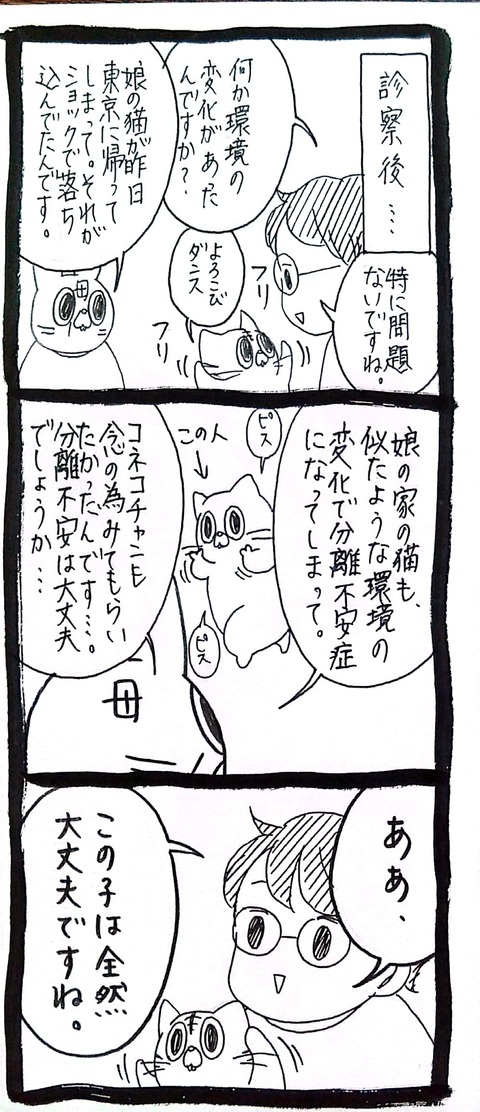 診察後…
特に問題
ないですね。
何か環境の
変化があった
んですか？
よろこび
ダンス
フリ
フリ
娘の猫が昨日
東京に帰って
しまって。それが
ショックで落ち
込んでたんです。
母
娘の家の猫も、
似たような環境の
変化で分離不安症
になってしまって。
ピス
この人
ピス
コネコチャンも
念の為みてもらい
たかったんです…。
分離不安は大丈夫
でしょうか…
母
ああ、
この子は全然
大丈夫ですね。